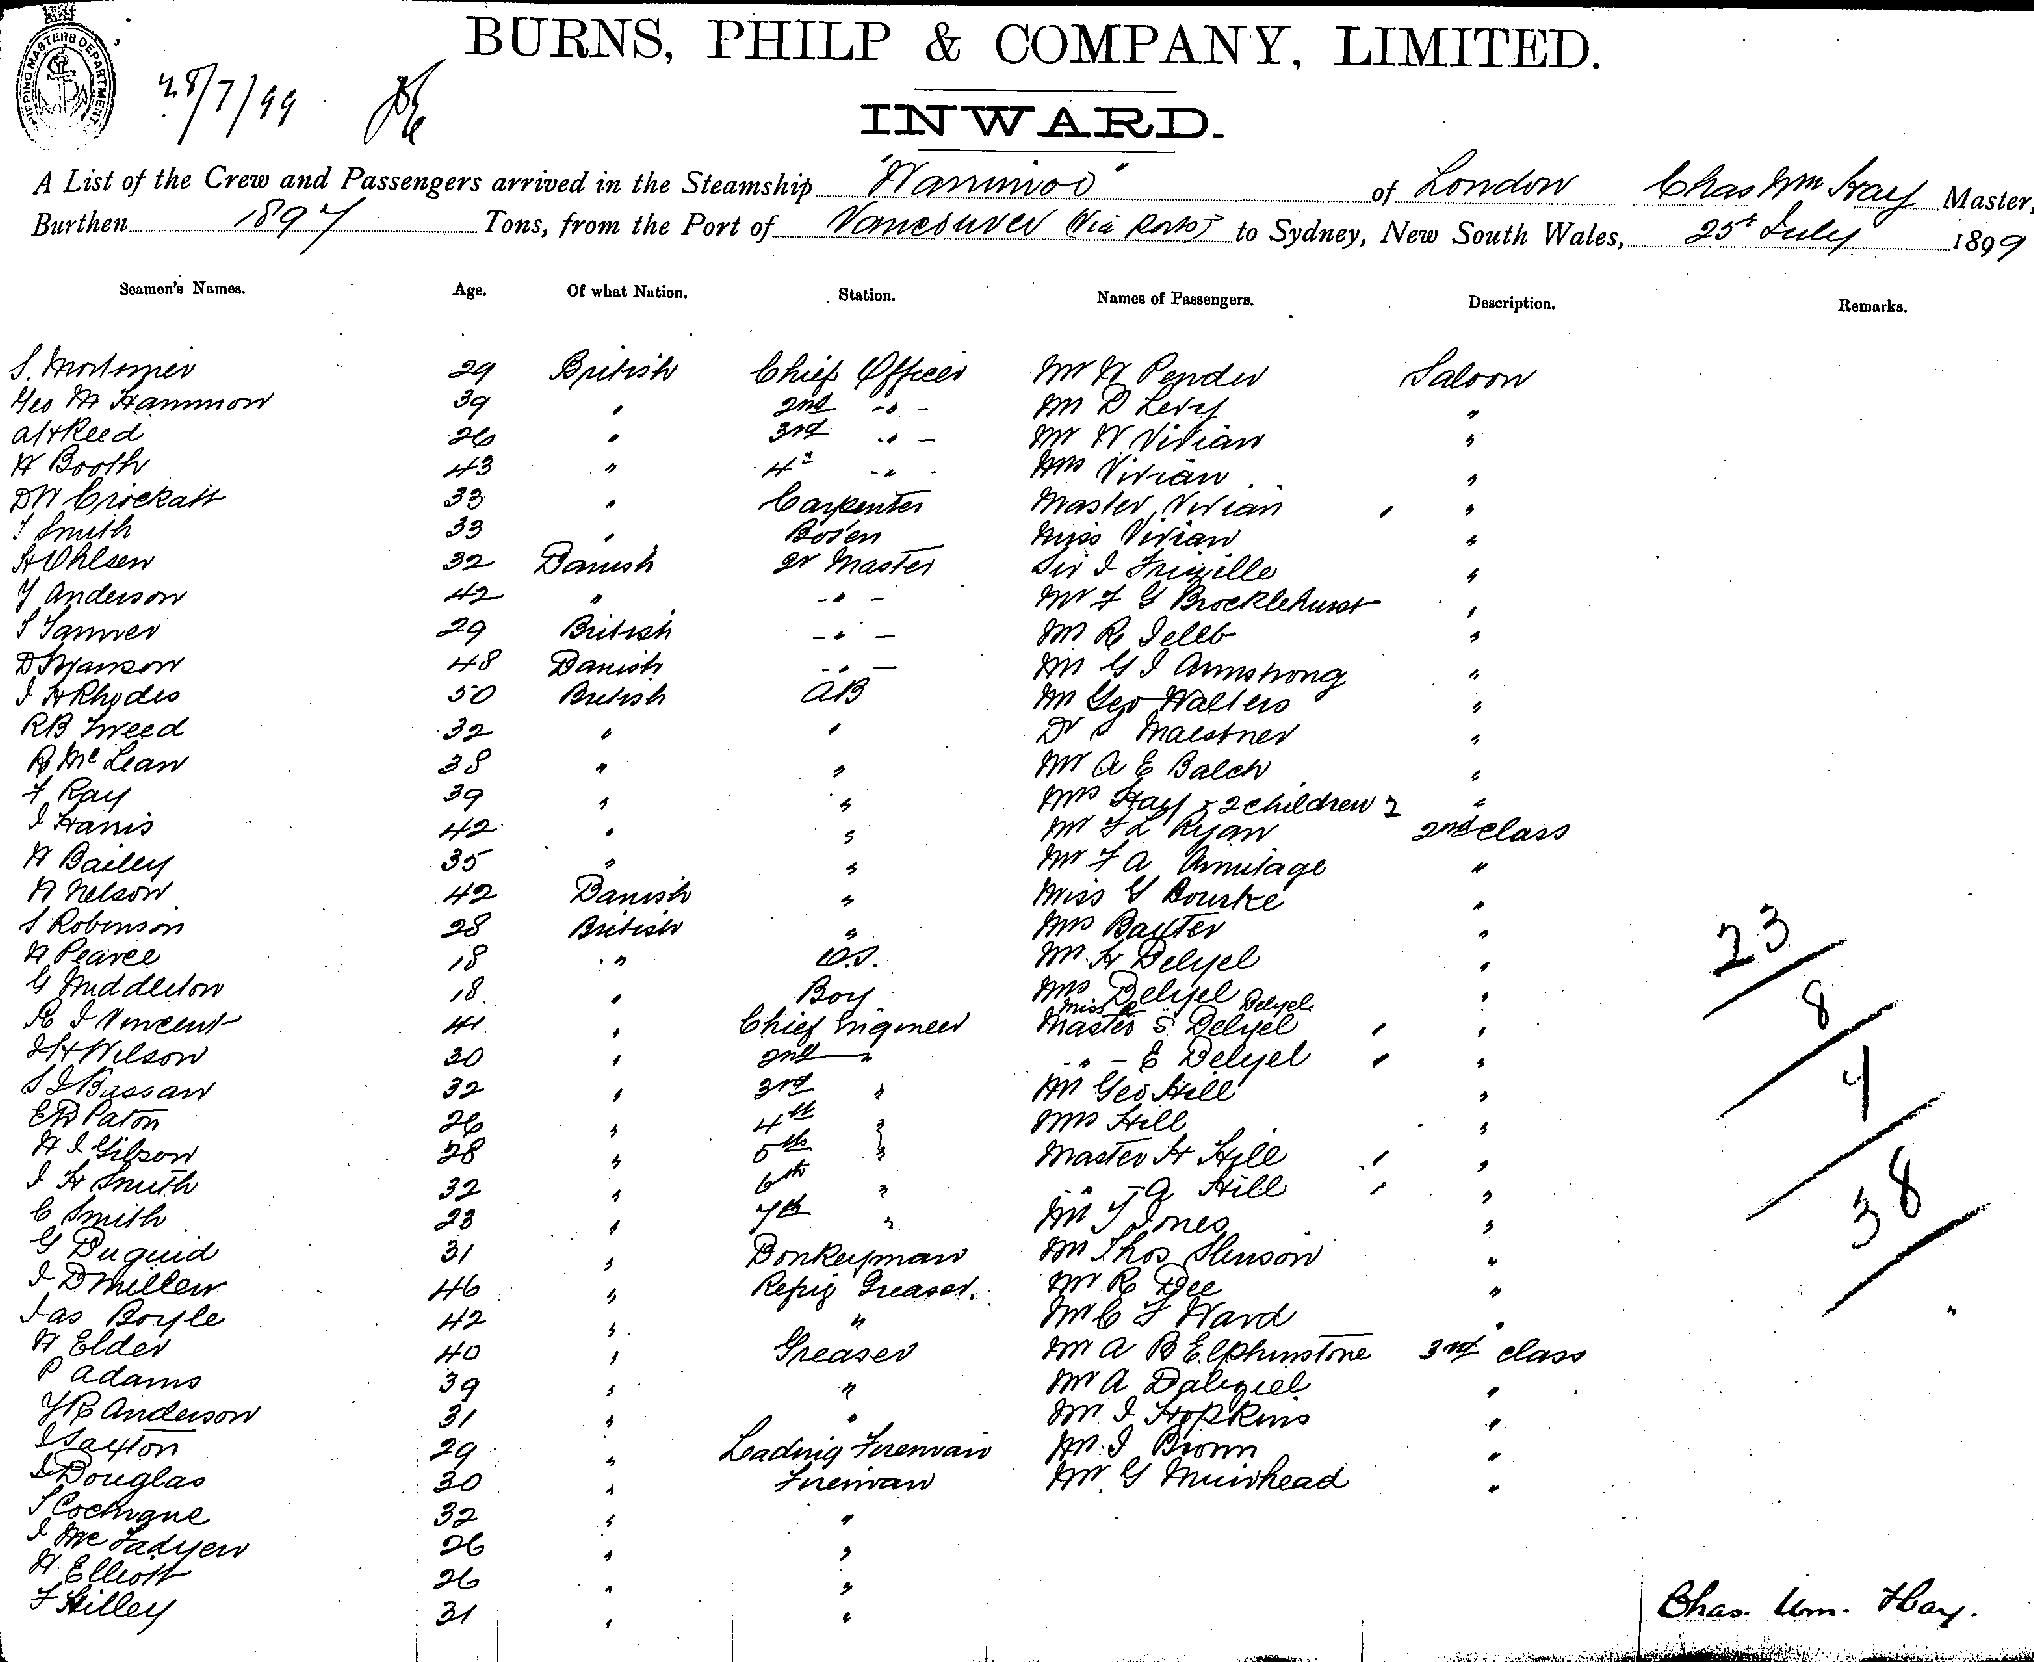 SHIPPING MASTERS DEPARTMENT
28/7/99
BURNS, PHILP & COMPANY, LIMITED.
INWARD.
A List of the Crew and Passengers arrived in the Steamship "Warrimoo" of London Chas Wm Hay Master,
Burthen 1897 Tons, from the Port of Vancouver Via Ports to Sydney, New South Wales, 25th July 1899
Seamen's Names. Age. Of what Nation. Station. Names of Passengers. Description. Remarks.
S. Mortimer 29 British Chief Officer Mr W Pender Saloon
Geo M Hammon 39 " 2nd -"- Mr D Levy "
A H Reed 26 " 3rd -"- Mr W Vivian "
W Booth 43 " 4th -"- Mrs Vivian "
D W Crockatt 33 " Carpenter Master Vivian "
Smith 33 " Bos'en Miss Vivian "
H Ohlsen 32 Danish Qr Master Sir J "
Anderson 42 " -"- Mr F G Brocklehurst "
Tanner 29 British -"- Mr R "
D Manson 48 Danish -"- Mr G J Armstrong "
J H Rhodes 50 British AB Mr Geo Walters "
R B Tweed 32 " " Dr Maestner "
R McLean 38 " " Mr A E Balch "
F Ray 39 " " Mrs Hay & 2 children 2 "
J Harris 42 " " Mr F L Ryan 2nd class
W Bailey 35 " " Mr F A Armitage "
N Nelson 42 Danish " Miss G Bourke "
S Robinson 28 British " Mrs Baxter "
W Pearce 18 " O.S. Mr H Delyel "
G Middleton 18 " Boy Mrs Delyel "
Miss Delyel
R J Vincent 41 " Chief Engineer Master S Delyel "
J H Wilson 30 " 2nd " -"- E Delyel "
S J Bussan 32 " 3rd " Mr Geo Hill "
E B Paton 26 " 4th " Mrs Hill "
W J Gibson 28 " 5th " Master H Hill "
J H Smith 32 " 6th " -"- A Hill "
C Smith 23 " 7th " Mr T Jones "
G Duguid 31 " Donkeyman Mr Thos Henson "
J D Millen 46 " Refrig Greaser. Mr R Dee "
Jas Boyle 42 " " Mr C F Ward "
W Elder 40 " Greaser Mr A B Elphinstone 3rd class
P Adams 39 " " Mr A Dalziel "
Anderson 31 " " Mr J Hopkins "
J Saxton 29 " Leading Fireman Mr J Brown "
J Douglas 30 " Fireman Mr G Muirhead "
S Cochrane 32 " "
J McFadyen 26 " "
W Elliott 26 " "
F Hilley 31 " "
23
8
4
38
Chas. Wm. Hay.